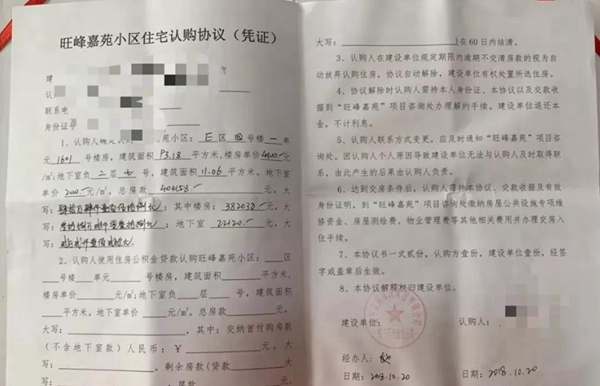 旺峰嘉苑小区住宅认购协议（凭证）
建
认
联系电
身份证号
1、认购人确定认购 苑小区：E 区 四 号楼 一
单元 1601 号楼房，建筑面积 93.18 平方米，楼房单价 4100 元
/㎡；地下室负 二 层 号，建筑面积 11.06 平方米，地下室
单价 2000 元/㎡，总房款 404158 元，大
写： 其中楼房：382038 元，大
写： 地下室 22120 元，大
写：
2、认购人使用住房公积金贷款认购旺峰嘉苑小区： 区
号楼 单元 号楼房，建筑面积 平方米，楼
房单价 元/㎡；地下室负 层 号，建筑面积
平方米，地下室单价 元/㎡，总房款 元，
大写： ，其中：交纳首付购房款
（不含地下室款）人民币：￥ 元，
大写： ，剩余房款(贷款
大写： 在 60 日内结清。
3、认购人在建设单位规定期限内逾期不交清房款的视为自
动放弃认购住房，协议自动解除，建设单位有权处置所选住房。
4、协议解除时认购人需持本人身份证、本协议以及交款收
据到“旺峰嘉苑”项目咨询处办理解约手续。建设单位退还本
金，不计利息。
5、认购人联系方式变更，应及时通知“旺峰嘉苑”项目咨
询处。因认购人个人原因导致建设单位无法与认购人及时取得联
系，由此产生的后果由认购人负责。
6、达到交房条件后，认购人需持本协议、交款收据及有效
身份证明，到“旺峰嘉苑”项目咨询处缴纳房屋公共设施专项维
修资金、房屋测绘费、物业管理费等其他相关费用并办理交房入
住手续。
7、本协议书一式贰份，认购方壹份，建设单位壹份，经签
字或盖章后生效。
8、本协议解释权归建设单位。
建设单位： 认购人：
经办人：
日期：2018.10.20 日期：2018.10.20